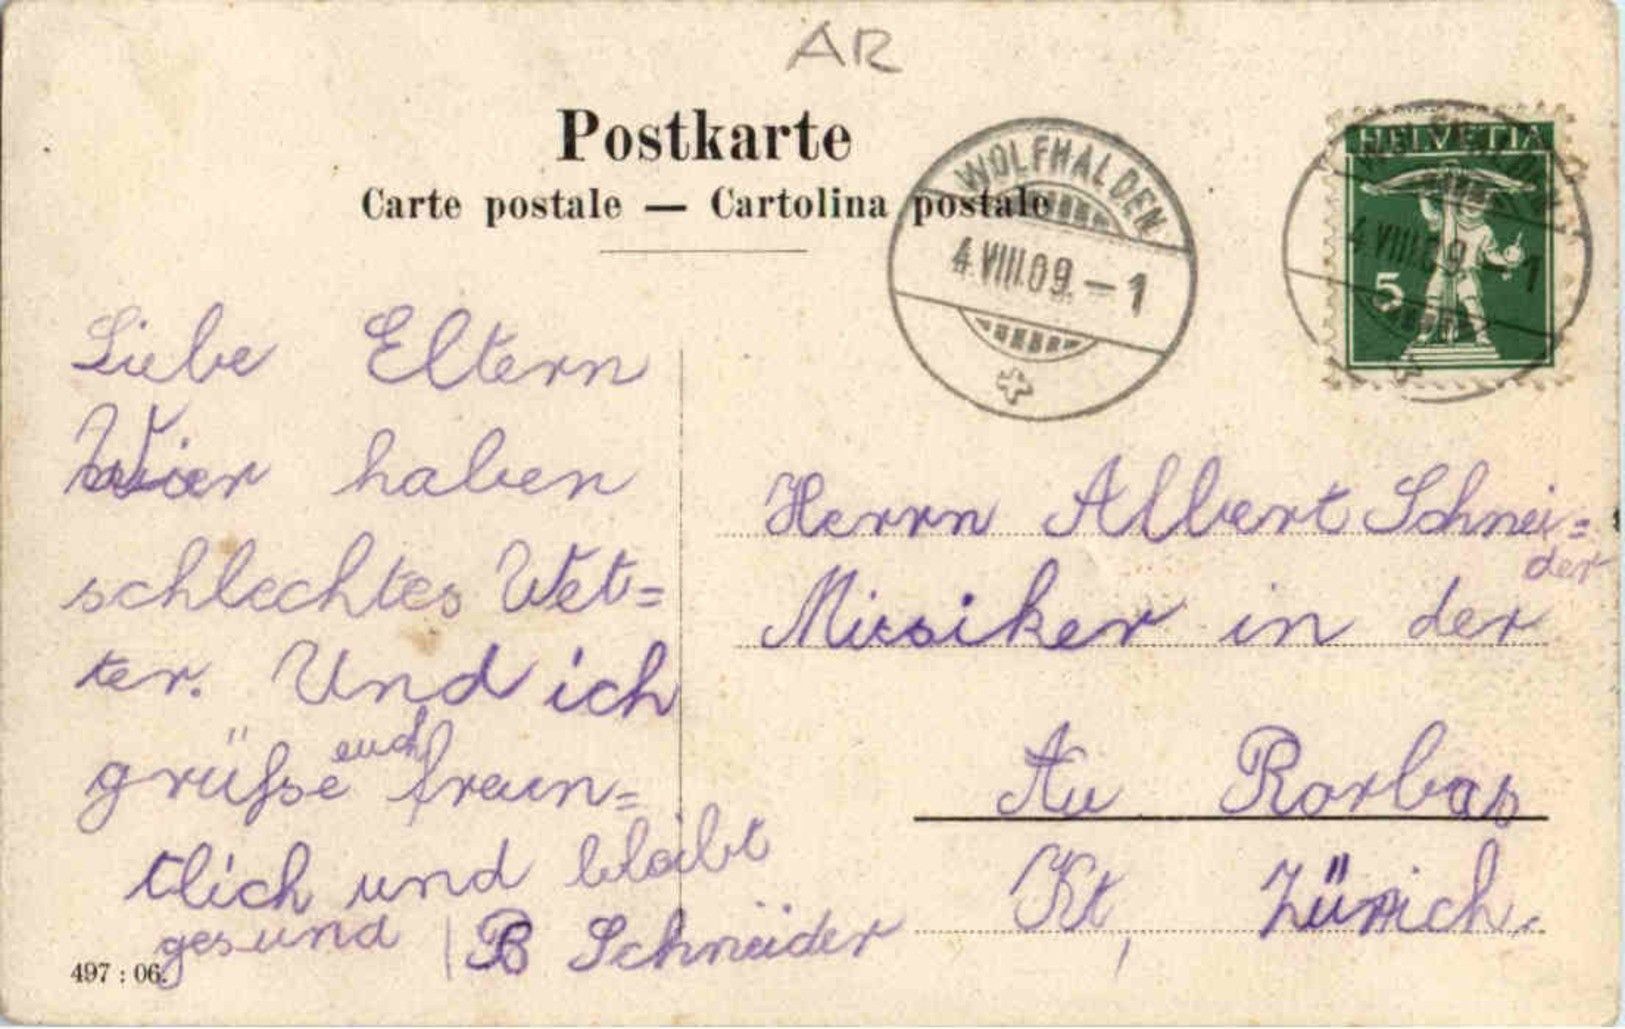 AR
Postkarte
Carte postale — Cartolina postale
WOLFHALDEN
4.VIII.09.–1
HELVETIA
5
WOLFHALDEN
4.VIII.09.–1
Liebe Eltern
Wier haben
schlechtes Wet=
ter. Und ich
grüsse euch freun=
tlich und bleibt
gesund | B Schneider
497 : 06.
Herrn Albert Schnei=
der
Mussiker in der
Au Rorbas
Kt, Zürich.